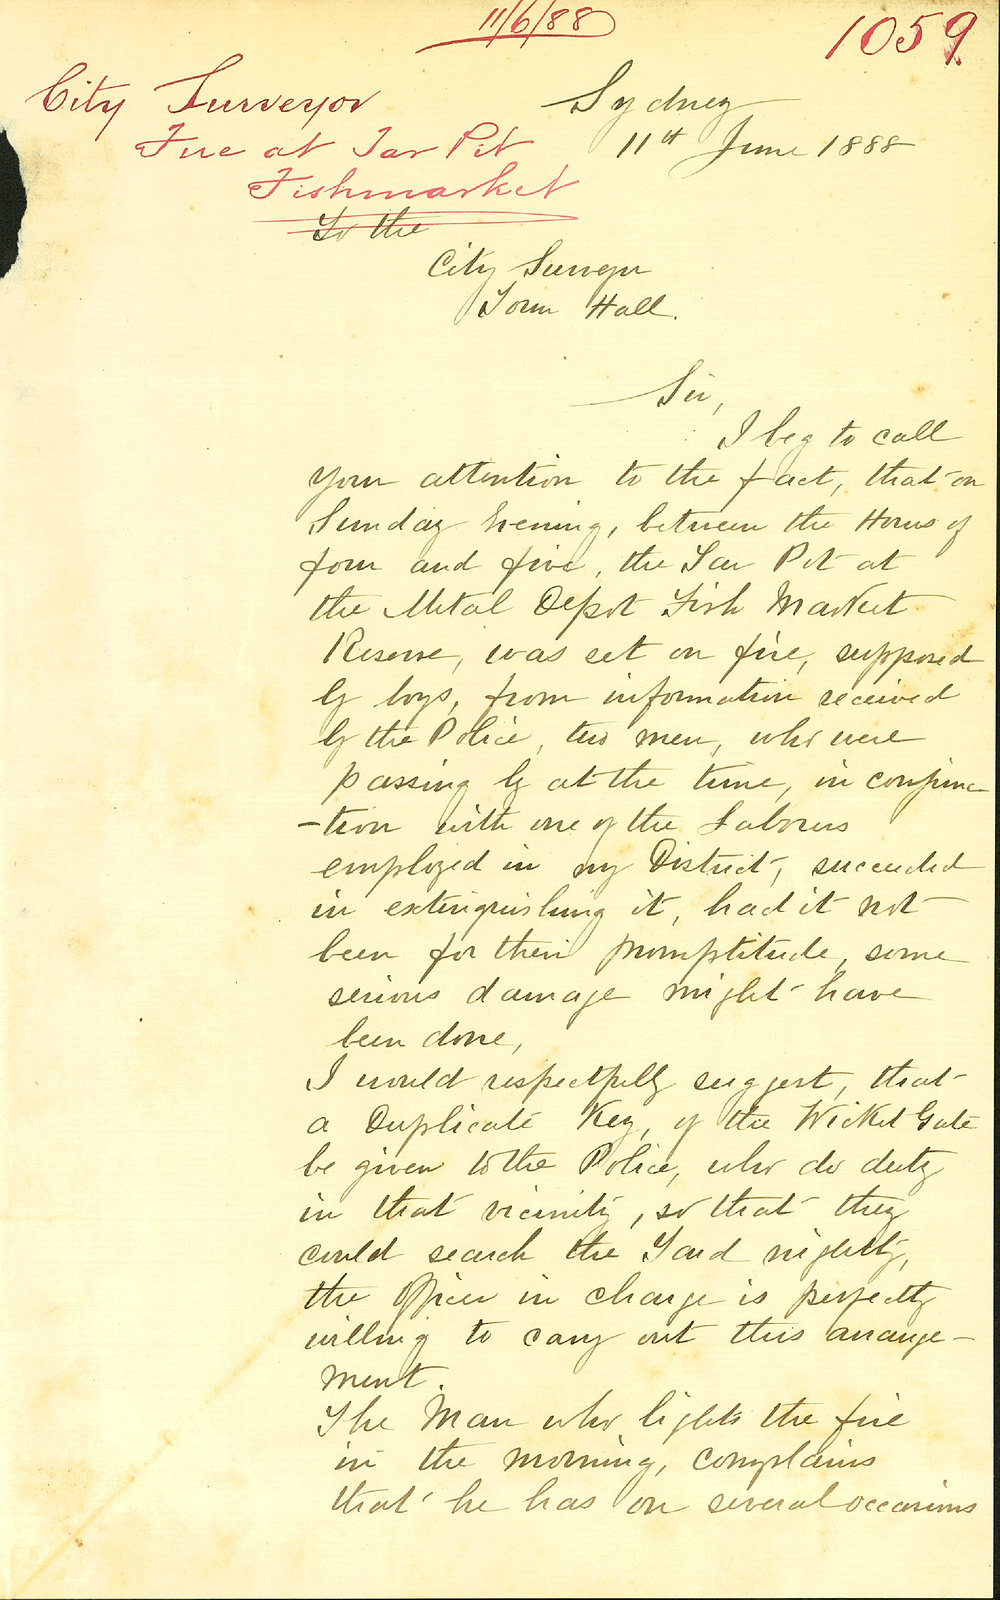 11/6/88
1059
City Surveyor
Fire at Tar Pit
Fishmarket
Sydney
11th June 1888
To the
City Surveyor
Town Hall.
Sir,
I beg to call
your attention to the fact, that on
Sunday Evening, between the Hours of
four and five, the Tar Pot at
the Metal Depot Fish Market
Reserve, was set on fire, supposed
by boys, from information received
by the Police, two men, who were
passing by at the time, in conjunc-
-tion with one of the Laborers
employed in my District, succeeded
in extinguishing it, had it not
been for their promptitude, some
serious damage might have
been done,
I would respectfully suggest, that
a Duplicate Key, of the Wicket Gate
be given to the Police, who do duty
in that vicinity, so that they
could search the Yard nightly,
the Officer in charge is perfectly
willing to carry out this arrange-
ment.
The Man who lights the fire
in the morning, complains
that he has on several occasions